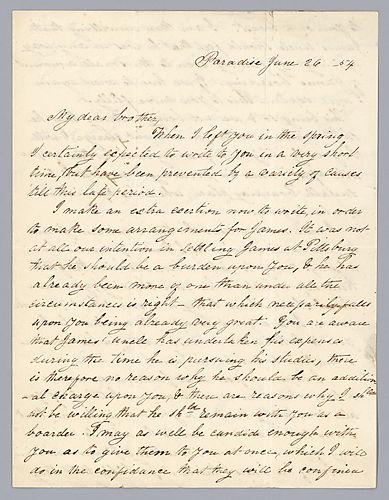 Paradise June 26 -54
My dear brother,
When I left you in the spring
I certainly expected to write to you in a very short
time, but have been prevented by a variety of causes
till this late period.
I make an extra exertion now to write, in order
to make some arrangements for James. It was not
at all our intention in settling James at Pittsburg
that he should be a burden upon you, & he has
already been more of one than under all the
circumstances is right – that which necessarily falls
upon you being already very great. You are aware
that James' uncle has undertaken his expenses
during the time he is pursuing his studies, there
is therefore no reason why he should be an addition
-al charge upon you, & there are reasons why I should
not be willing that he shd remain with you as a
boarder. I may as well be candid enough with
you as to give them to you at once, which I will
do in the confidence that they will be